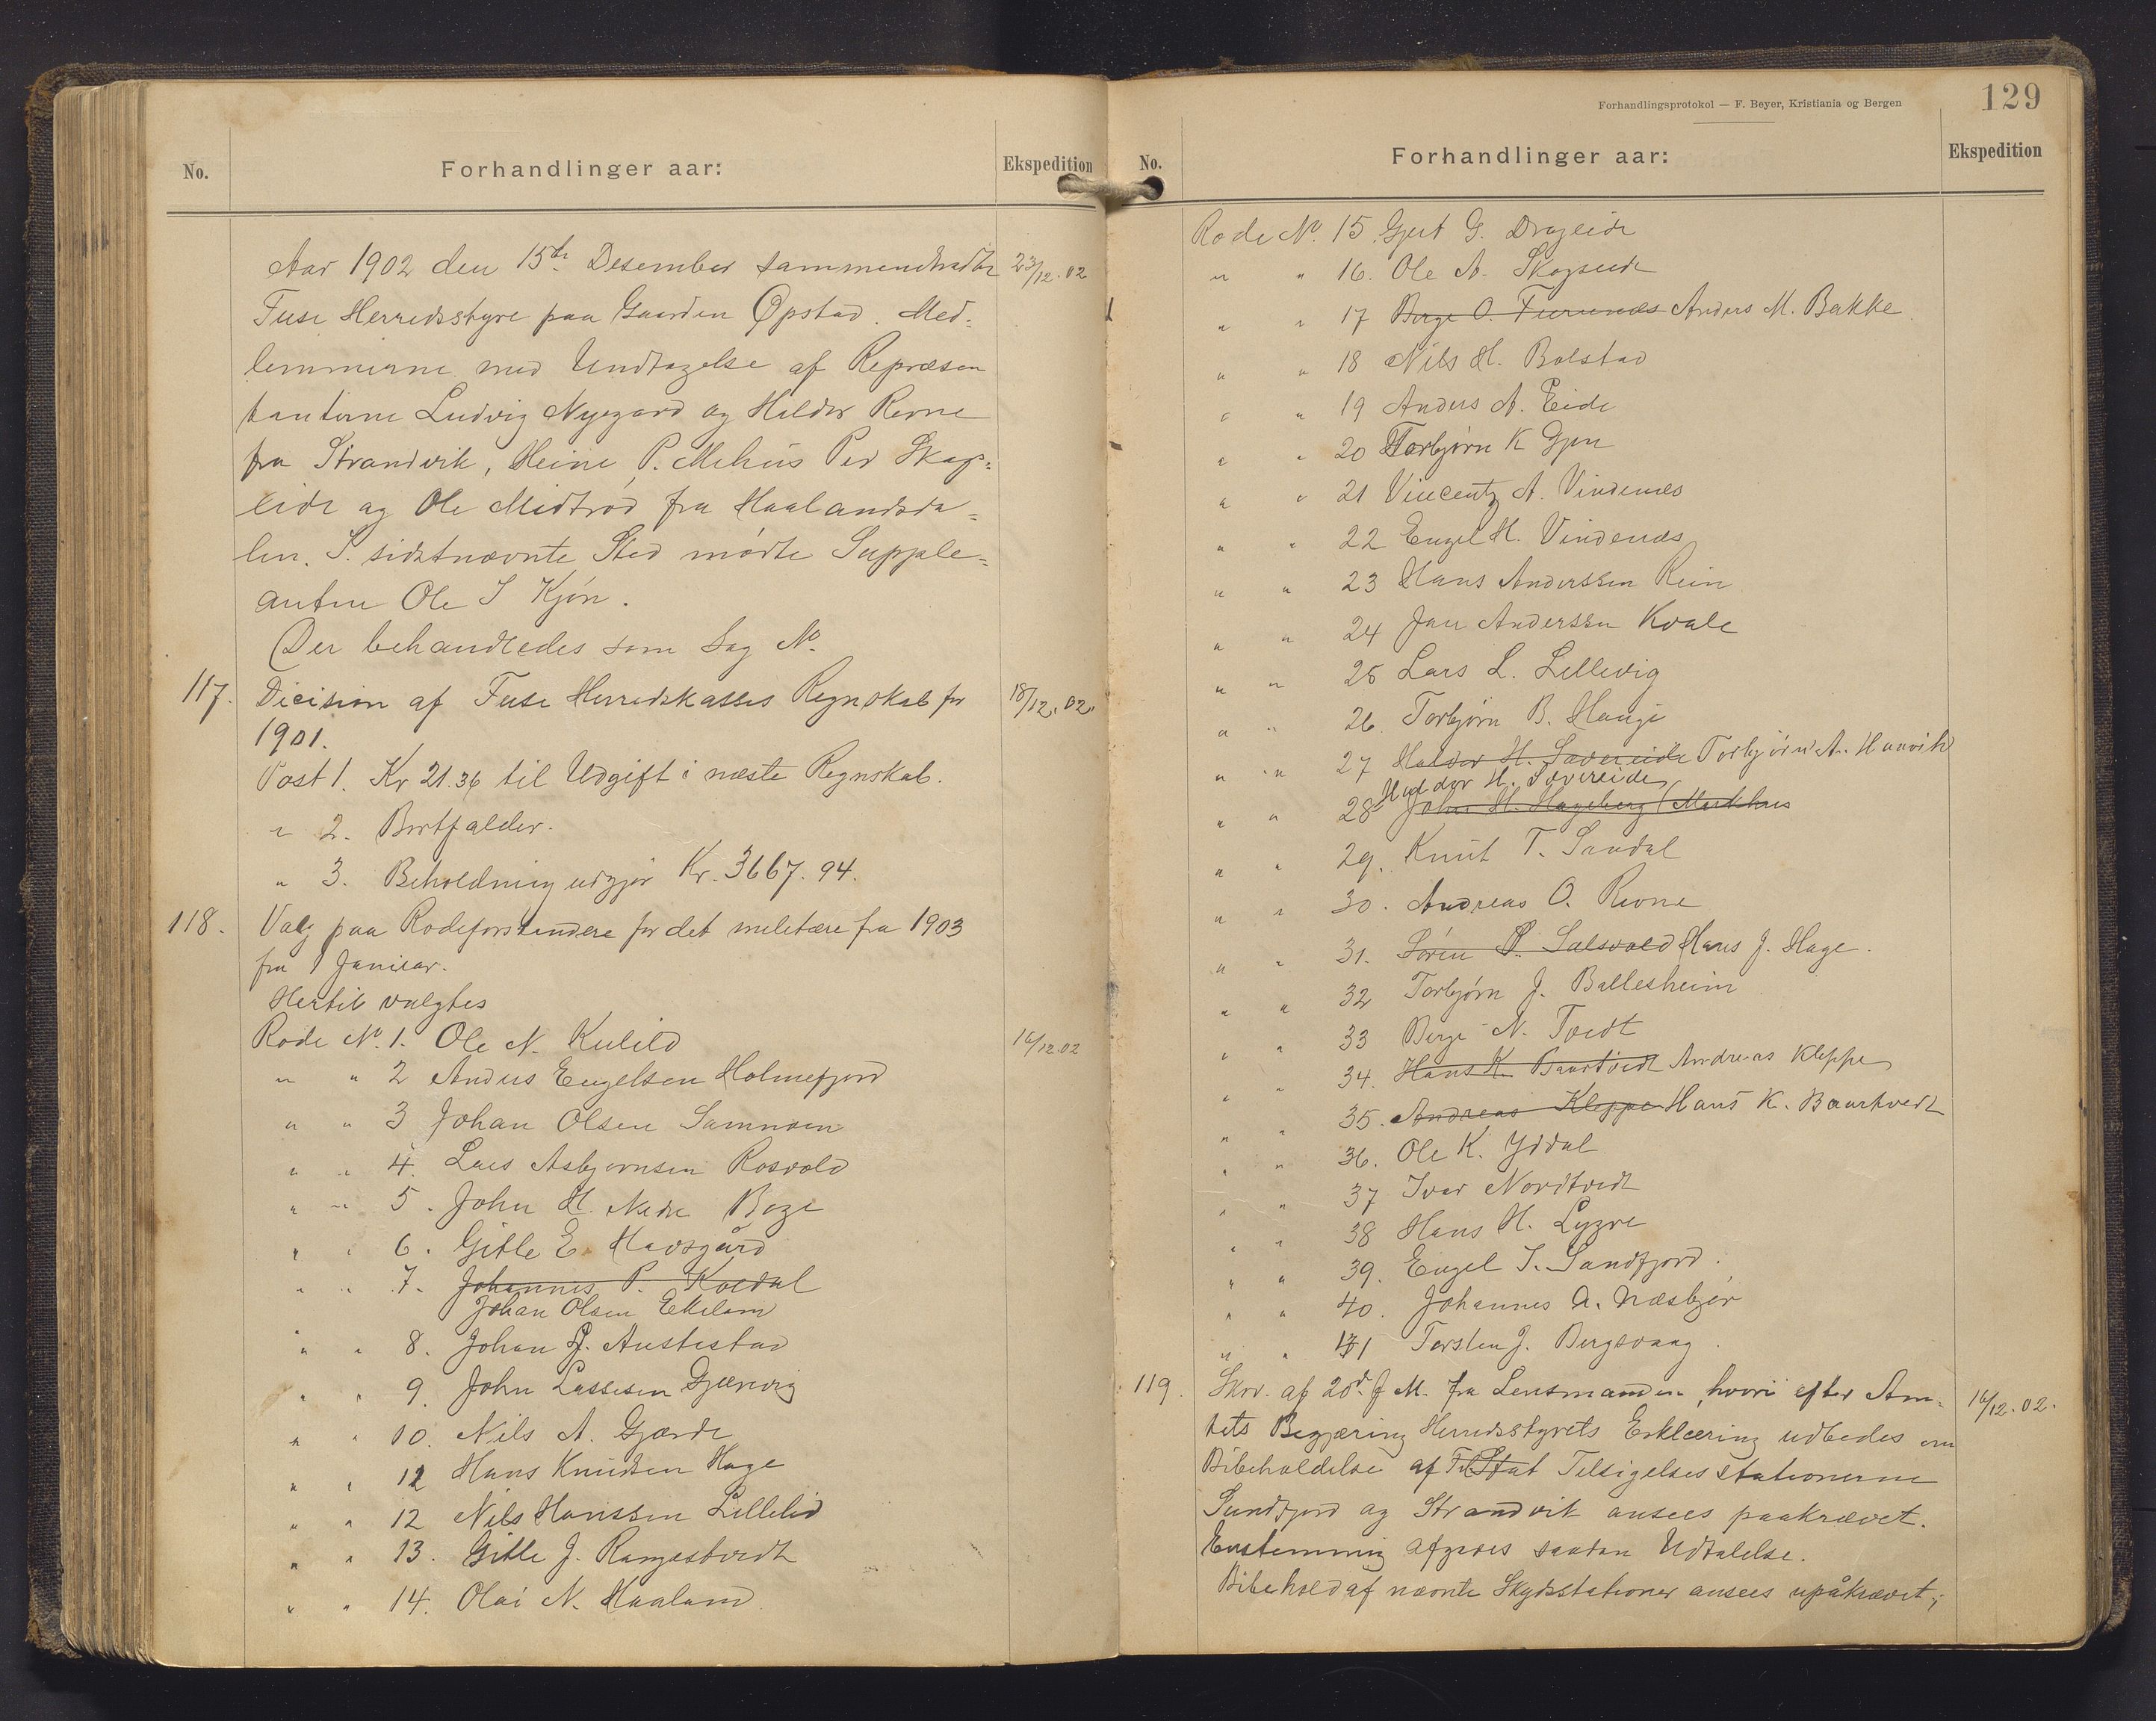 No.
Forhandlinger aar:
Ekspedition
Aar 1902 den 15de Desember sammentraadte 23/12.02
Fuse Herredsstyre paa Gaarden Opstad. Med-
lemmerne med Undtagelse af Repræsen
tanterne Ludvig Nygaard og Haldor Revne
fra Strandvik, Heine P. Mehus Per Skogs-
eide og Ole Midtrød fra Haalandsda-
len. I. sidstnævnte Sted mødte Supple-
anten Ole I Kjøn.
Der behandledes som Sag No
117. Dicision af Fuse Herredskasses Regnskab for 18/12.02.
1901.
Post 1. Kr 21.36 til Udgift i næste Regnskab.
" 2. Bortfalder.
" 3. Beholdning udgjør Kr. 3667.94.
118. Valg paa Rodeforstandere for det militære fra 1903
fra 1 Januar.
Hertil valgtes
Rode No. 1. Ole N. Kulild 16/12.02
" " 2 Anders Engelsen Holmefjord
" " 3 Johan Olsen Samnøen
" " 4. Lars Asbjørnsen Rosvold
" " 5. John H. Nedre Boge
" " 6. Gitle E. Havsgård
" " 7. Johannes P. Koldal
Johan Olsen Ekeland
" " 8. Johan J. Austestad
" " 9. John Lassesen Gjærevig
" " 10. Nils A. Gjærde
" " 11 Hans Knudsen Hage
" " 12 Nils Hanssen Lillelid
" " 13. Gitle J. Rangastvedt
" " 14. Olai N. Haaland
Forhandlingsprotokol — F. Beyer, Kristiania og Bergen
129
No.
Forhandlinger aar:
Ekspedition
Rode No. 15. Gjert G. Drageide
" " 16. Ole A. Skogseide
" " 17 Berge O. Furunæs Anders M. Bakke
" " 18 Nils H. Bolstad
" " 19 Anders A. Eide
" " 20 Torbjørn K Gjøn
" " 21 Vincentz A. Vindenes
" " 22 Engel H. Vindenæs
" " 23 Hans Anderssen Rein
" " 24 Jan Anderssen Kvale
" " 25 Lars L. Lillevig
" " 26 Torbjørn B. Hauge
" " 27 Haldor H. Sævereide Torbjørn A. Haavik
Haldor H. Sævereide
" " 28 Johan H. Hageberg (Markhus
" " 29. Knut T. Sandal
" " 30. Andreas O. Revne
" " 31. Søren P. Salsvold Hans J. Hage.
" " 32 Torbjørn J. Ballesheim
" " 33 Berge N. Tvedt
" " 34. Hans K. Baartvedt Andreas Kleppe
" " 35. Andreas Kleppe Hans K. Baartvedt
" " 36. Ole K. Yddal
" " 37 Ivar Nordtvedt
" " 38 Hans H. Lygre
" " 39. Engel I. Sundfjord.
" " 40. Johannes A. Næsbjør
" " 41 Torsten J. Bergsvaag.
119. Skr. af 20d. f M. fra Lensmanden, hvori efter Am- 16/12.02.
tets Begjæring Herredsstyrets Erklæring udbedes om
Bibeholdelse af Til Stat Tilsigelsesstationerne
Sundfjord og Strandvik ansees paakrævet.
Enstemmig afgaves saadan Udtalelse.
Bibehold af nævnte Skydsstationer ansees upåkrævet;